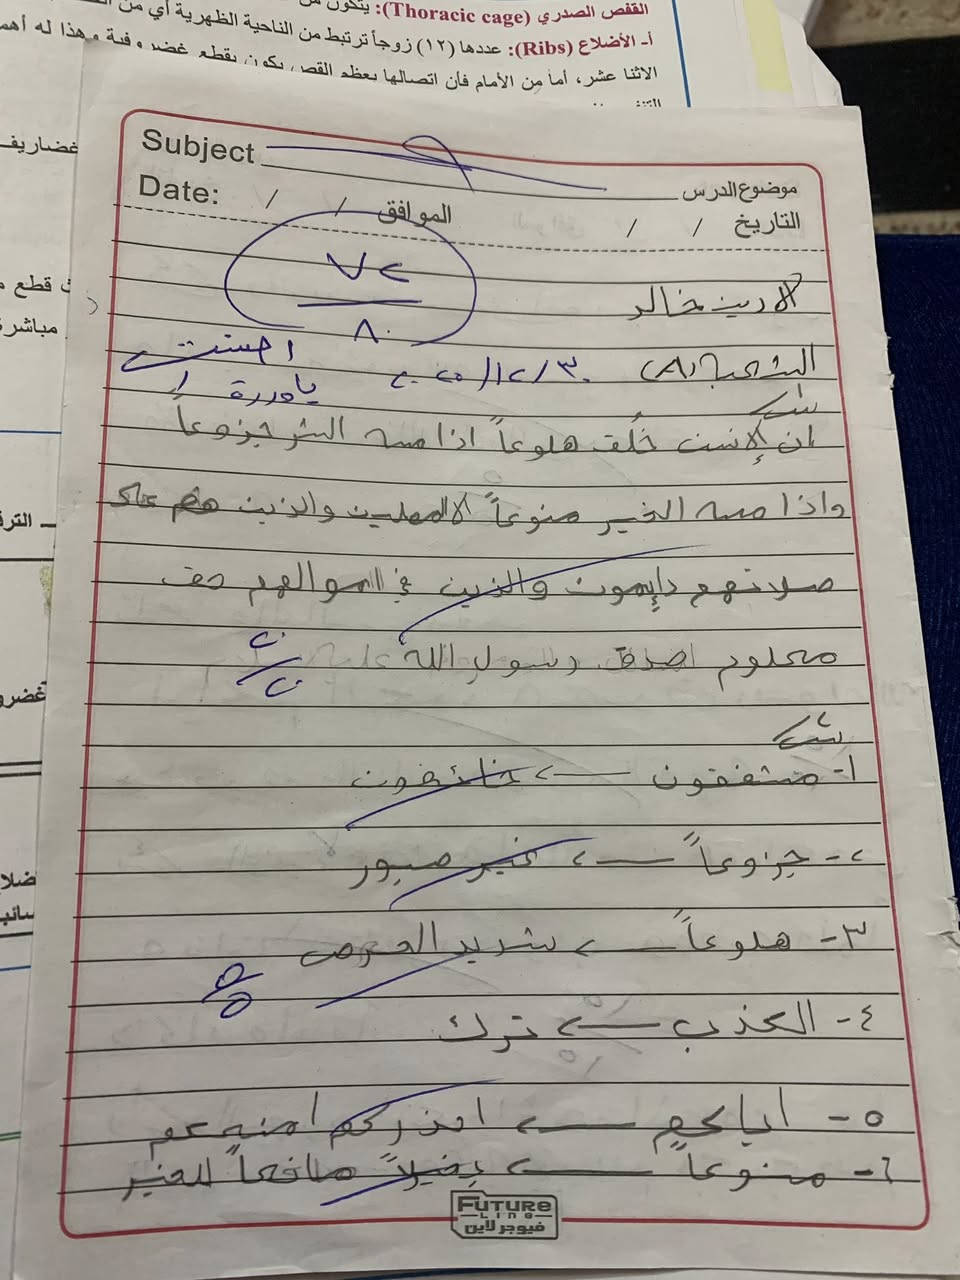 القفص الصدري (Thoracic cage): يتكون
أ- الأضلاع (Ribs): عددها (١٢) زوجاً ترتبط من الناحية الظهرية أي من
الاثنا عشر، أما من الأمام فأن اتصالها بعظم القص يكون بقطع غضروفية وهذا له
غضاريف
قطع
مباشرة
الترق
غضرو
ضلا
سائب
Subject
موضوع الدرس
Date: / / الموافق
التاريخ / /
٧٢
٨٠
خالد
الشعبة
٢٠٢٥/١٢/٣٠
احسنت
يا وردة
ان الإنسن خُلق هلوعاً اذا مسه الشر جزوعاً
واذا مسه الخير منوعاً الا المصلين والذين هم على
صلاتهم دايمون والذين في اموالهم حق
معلوم صدق رسول الله
٢٠
٢٠
١- مشفقون ← خائفون
٢- جزوعاً ← غير صبور
٣- هلوعاً ← شديد الحرص
٥
٥
٤- الكذب ← ترك
٥- اياكم ← احذركم امنعكم
٦- منوعاً ← بخيلاً مانعاً للخير
FUTURE
LINE
فيوجر لاين